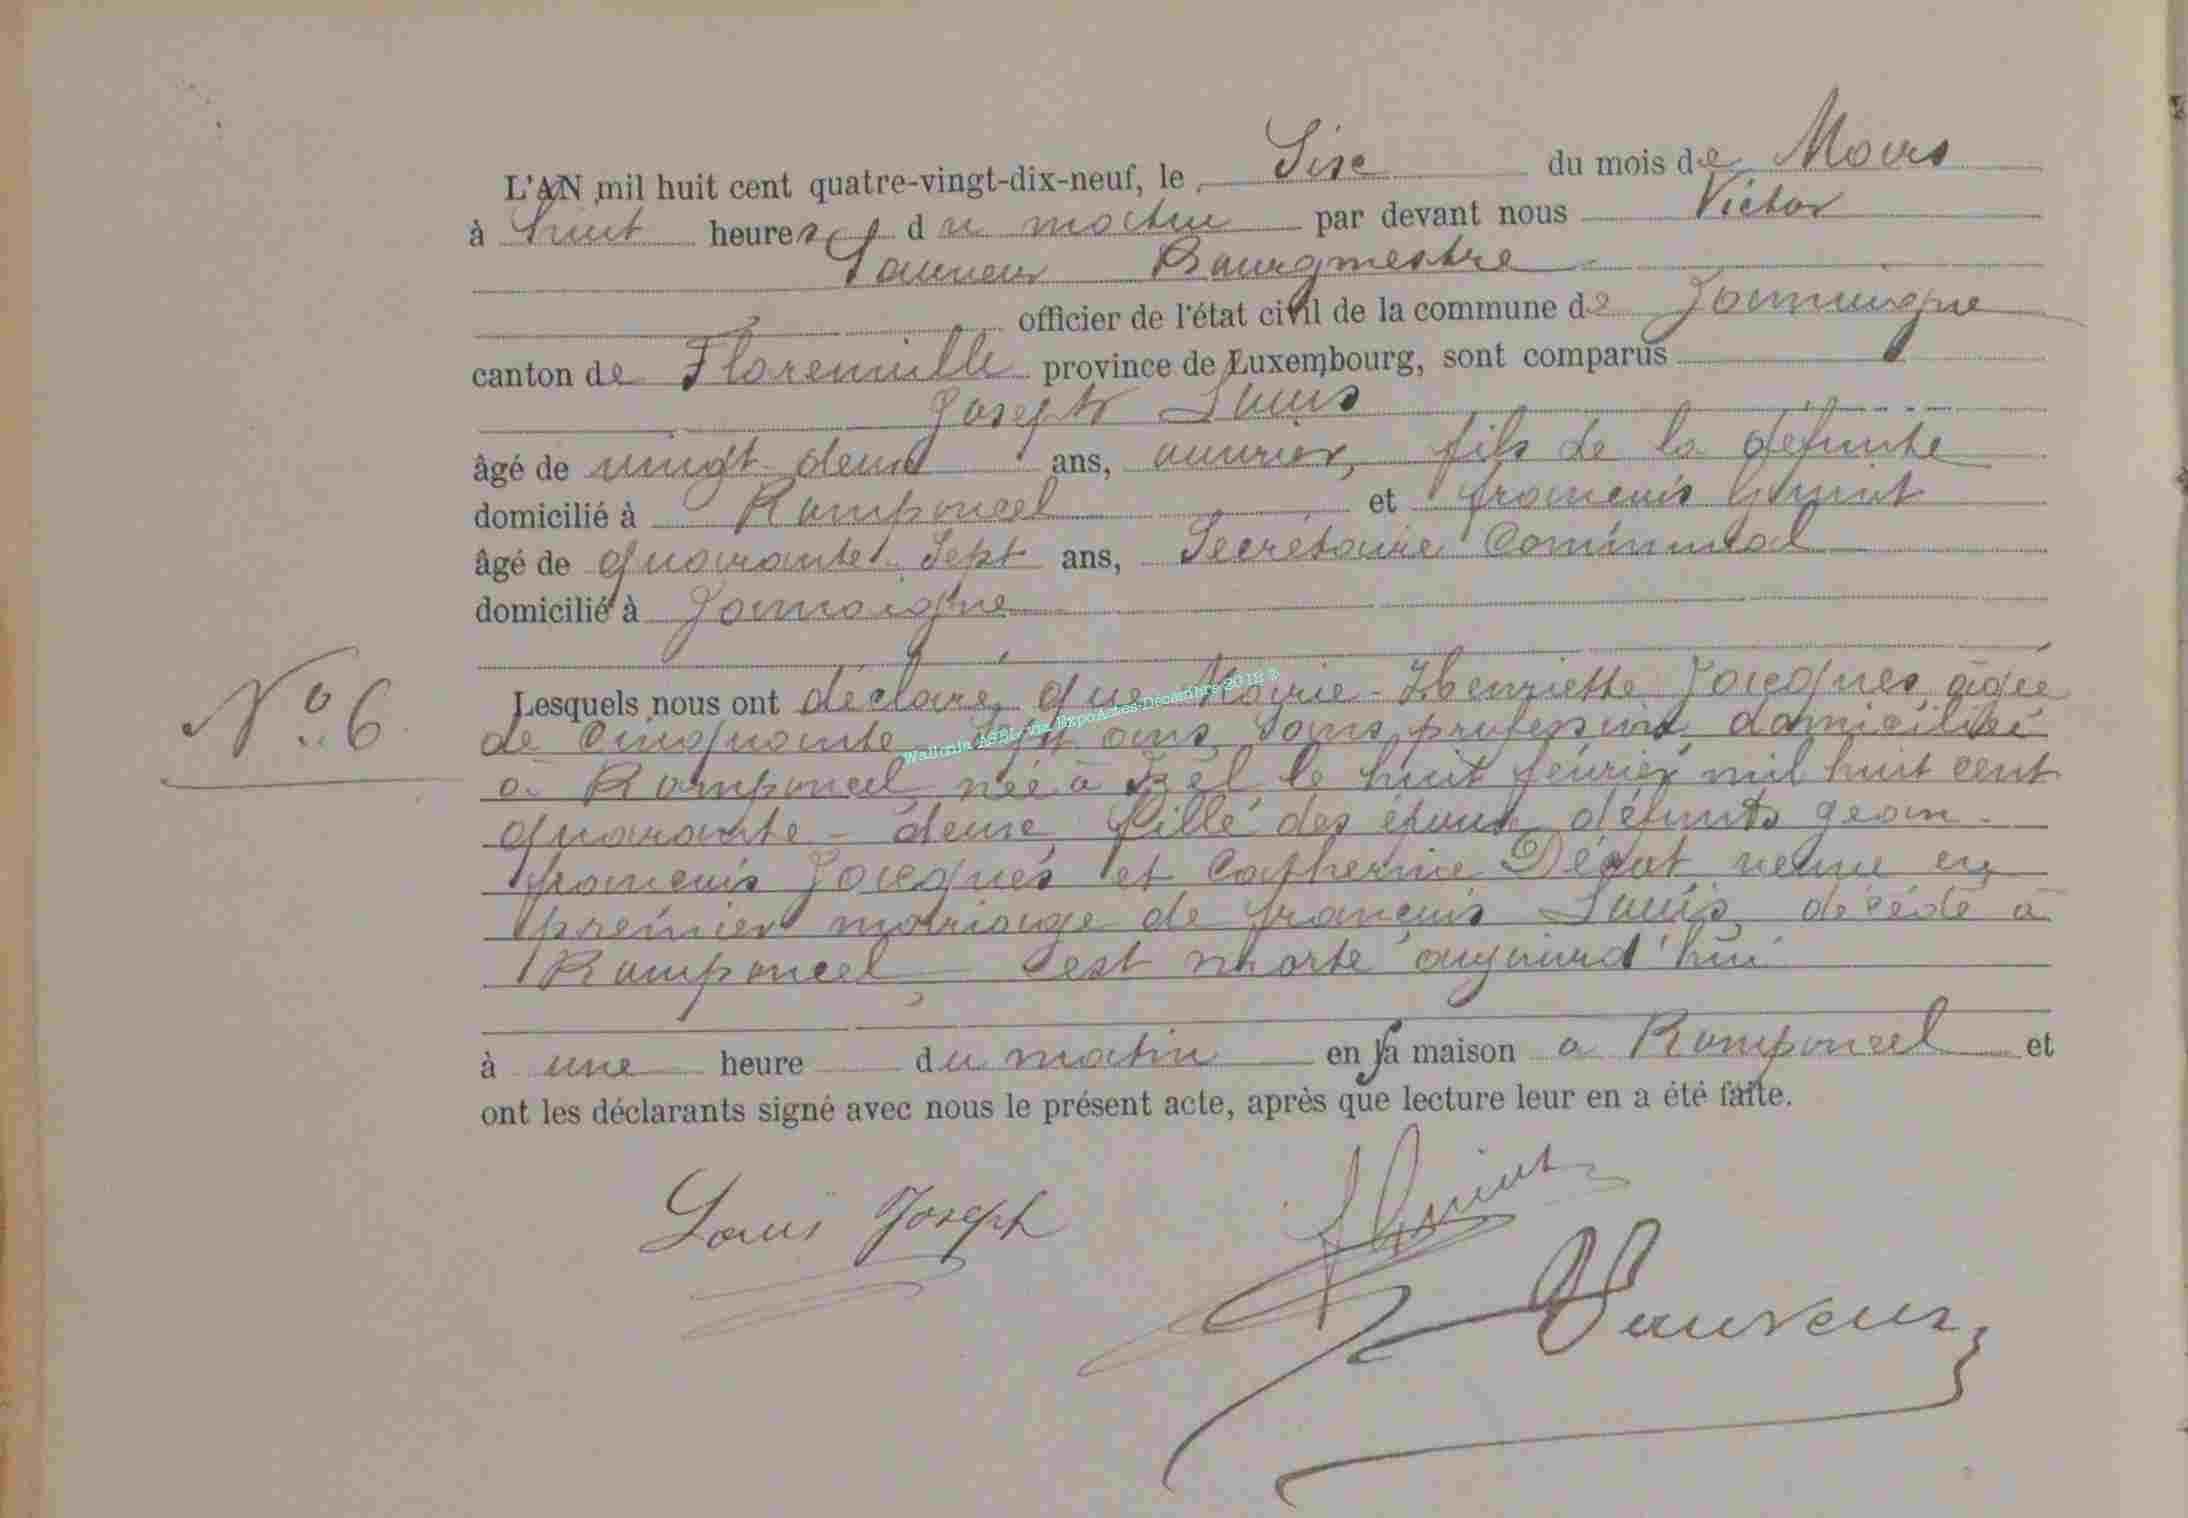 L'AN mil huit cent quatre-vingt-dix-neuf, le Six du mois de Mars
à huit heures du matin par devant nous Victor
Sauveur Bourgmestre
officier de l'état civil de la commune de Jamoigne
canton de Florenville province de Luxembourg, sont comparus
Joseph Louis
âgé de vingt deux ans, ouvrier, fils de la défunte
domicilié à Romponcel et françois
âgé de quarante Sept ans, Secrétaire Communal
domicilié à Jamoigne
N° 6
Lesquels nous ont déclaré que Marie-Henriette Jacques, agée
de Cinquante Sept ans, Sans profession domiciliée
à Romponcel, née à Izel le huit février mil huit cent
quarante-deux, fille des époux défunts Jean-
françois Jacques et Catherine veuve en
premier mariage de françois Louis, décédé à
Romponcel est morte aujourd'hui
à une heure du matin en sa maison a Romponcel et
ont les déclarants signé avec nous le présent acte, après que lecture leur en a été faite.
Louis Joseph
Sauveur
Wallonia ASBL via ExpoActes Décembre 2012 ©